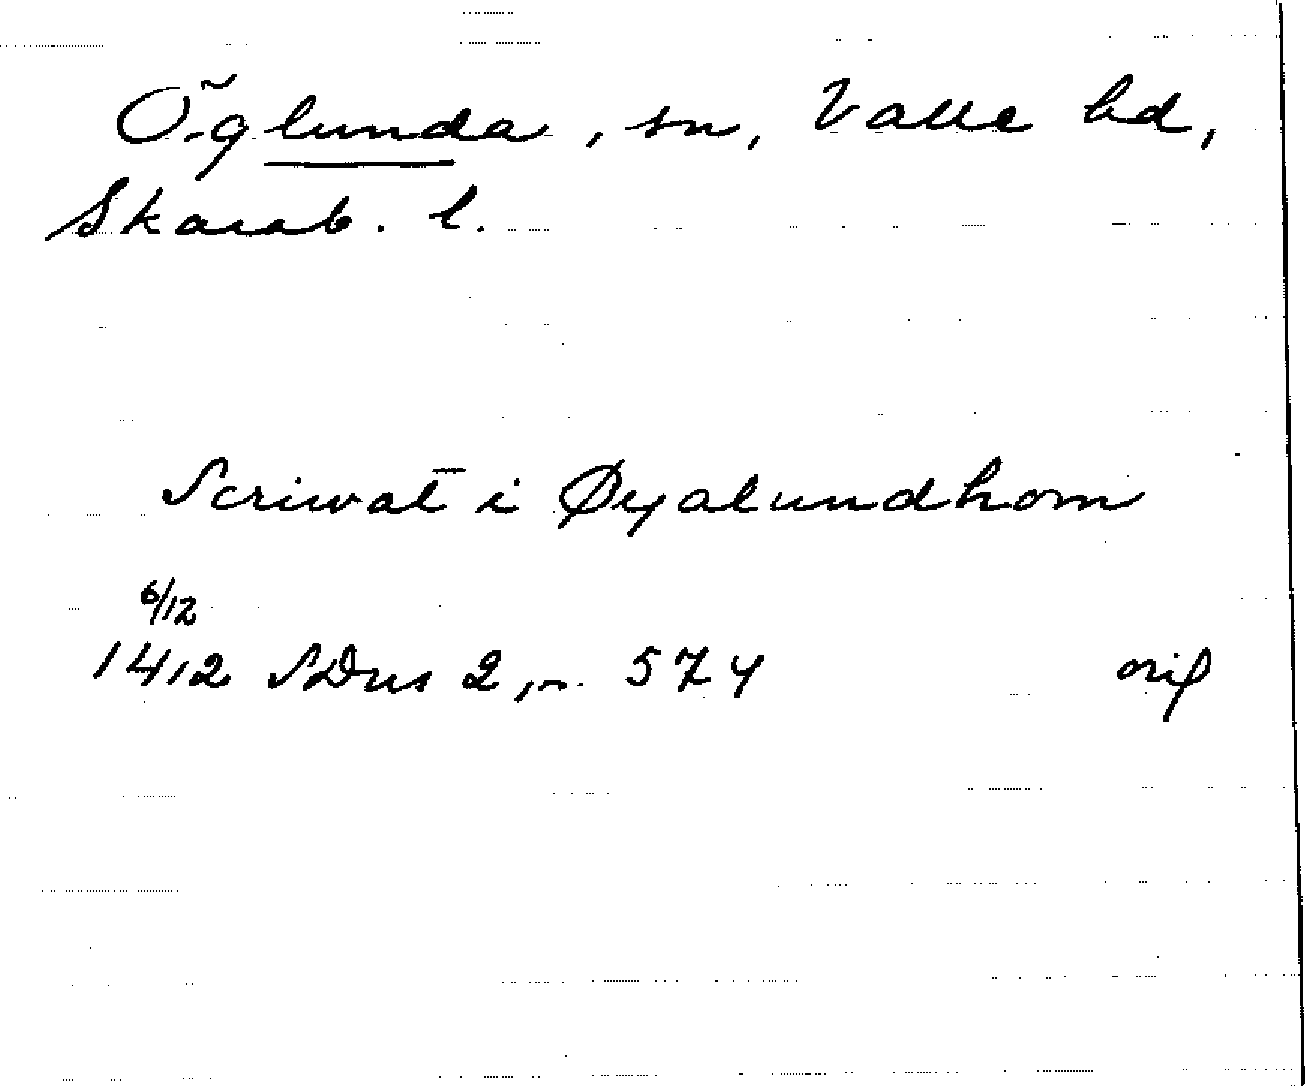 Öglunda, sn, Valle hd,
Skarab. l.
Scriwat i Øyalundhom
6/12
1412 SDns 2, s. 574
orig